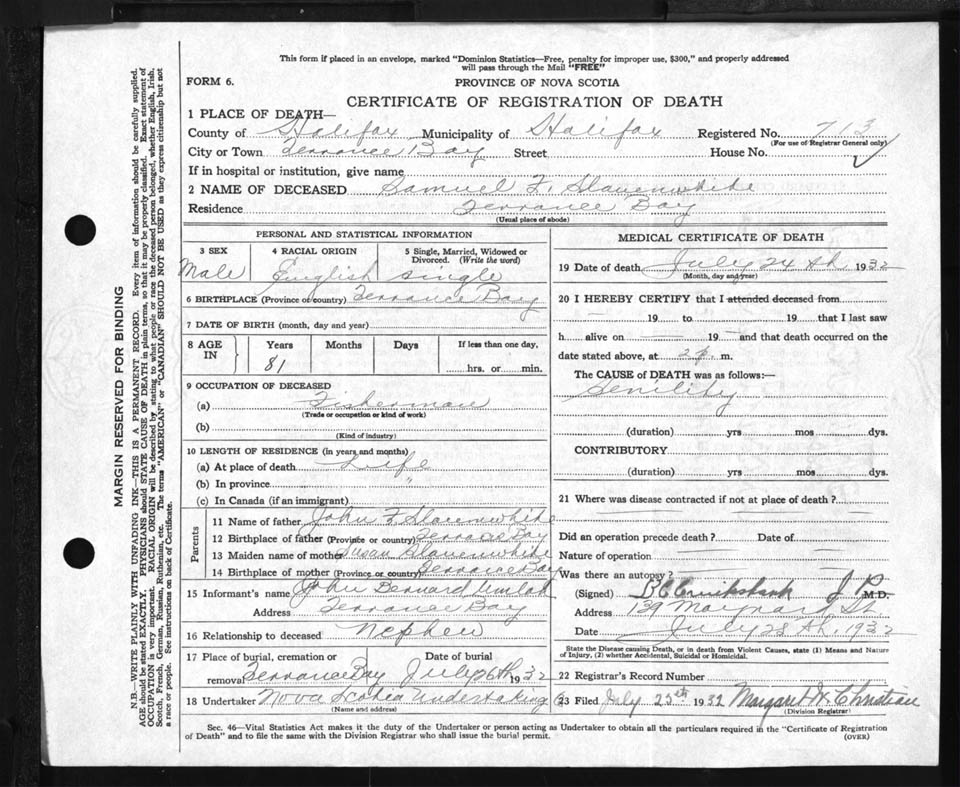 This form if placed in an envelope, marked "Dominion Statistics—Free, penalty for improper use, $300," and properly addressed
will pass through the Mail "FREE"
FORM 6.
PROVINCE OF NOVA SCOTIA
CERTIFICATE OF REGISTRATION OF DEATH
1 PLACE OF DEATH—
County of Halifax Municipality of Halifax Registered No. 713
(For use of Registrar General only)
City or Town Terrance Bay Street House No.
If in hospital or institution, give name
2 NAME OF DECEASED Samuel F. Slauenwhite
Residence Terrance Bay
(Usual place of abode)
PERSONAL AND STATISTICAL INFORMATION
3 SEX 4 RACIAL ORIGIN 5 Single, Married, Widowed or
Divorced. (Write the word)
Male English single
6 BIRTHPLACE (Province or country) Terrance Bay
7 DATE OF BIRTH (month, day and year)
8 AGE IN Years Months Days If less than one day,
81 hrs. or min.
9 OCCUPATION OF DECEASED
(a) Fisherman
(Trade or occupation or kind of work)
(b)
(Kind of industry)
10 LENGTH OF RESIDENCE (in years and months)
(a) At place of death Life
(b) In province "
(c) In Canada (if an immigrant)
Parents
11 Name of father John F. Slauenwhite
12 Birthplace of father (Province or country) Terrace Bay
13 Maiden name of mother Susan Slauenwhite
14 Birthplace of mother (Province or country) Terrance Bay
15 Informant's name John Bernard Umlah
Address Terrance Bay
16 Relationship to deceased Nephew
17 Place of burial, cremation or Date of burial
removal Terrance Bay July 26th 1932
18 Undertaker Nova Scotia Undertaking
(Name and address)
MEDICAL CERTIFICATE OF DEATH
19 Date of death July 24th 1932
(Month, day and year)
20 I HEREBY CERTIFY that I attended deceased from
— 19 — to — 19 — that I last saw
h alive on — 19 — and that death occurred on the
date stated above, at 2 p. m.
The CAUSE of DEATH was as follows:—
Senility
(duration) yrs mos dys.
CONTRIBUTORY
(duration) yrs mos dys.
21 Where was disease contracted if not at place of death?
Did an operation precede death? Date of
Nature of operation
Was there an autopsy?
(Signed) B C Cruikshank J P M.D.
Address 139 Maynard St.
Date July 28th, 1932
State the Disease causing Death, or in death from Violent Causes, state (1) Means and Nature
of Injury, (2) whether Accidental, Suicidal or Homicidal.
22 Registrar's Record Number
23 Filed July 25th 1932 Margaret
(Division Registrar)
Sec. 46—Vital Statistics Act makes it the duty of the Undertaker or person acting as Undertaker to obtain all the particulars required in the "Certificate of Registration
of Death" and to file the same with the Division Registrar who shall issue the burial permit. (OVER)
MARGIN RESERVED FOR BINDING
N.B.—WRITE PLAINLY WITH UNFADING INK—THIS IS A PERMANENT RECORD. Every item of information should be carefully supplied.
AGE should be stated EXACTLY. PHYSICIANS should STATE CAUSE OF DEATH in plain terms, so that it may be properly classified. Exact statement of
OCCUPATION is very important. RACIAL ORIGIN will be described by stating to what people or race the deceased person belonged, whether English, Irish,
Scotch, French, German, Russian, Ruthenian, etc. The terms "AMERICAN" or "CANADIAN" SHOULD NOT BE USED as they express citizenship but not
a race or people. See instructions on back of Certificate.